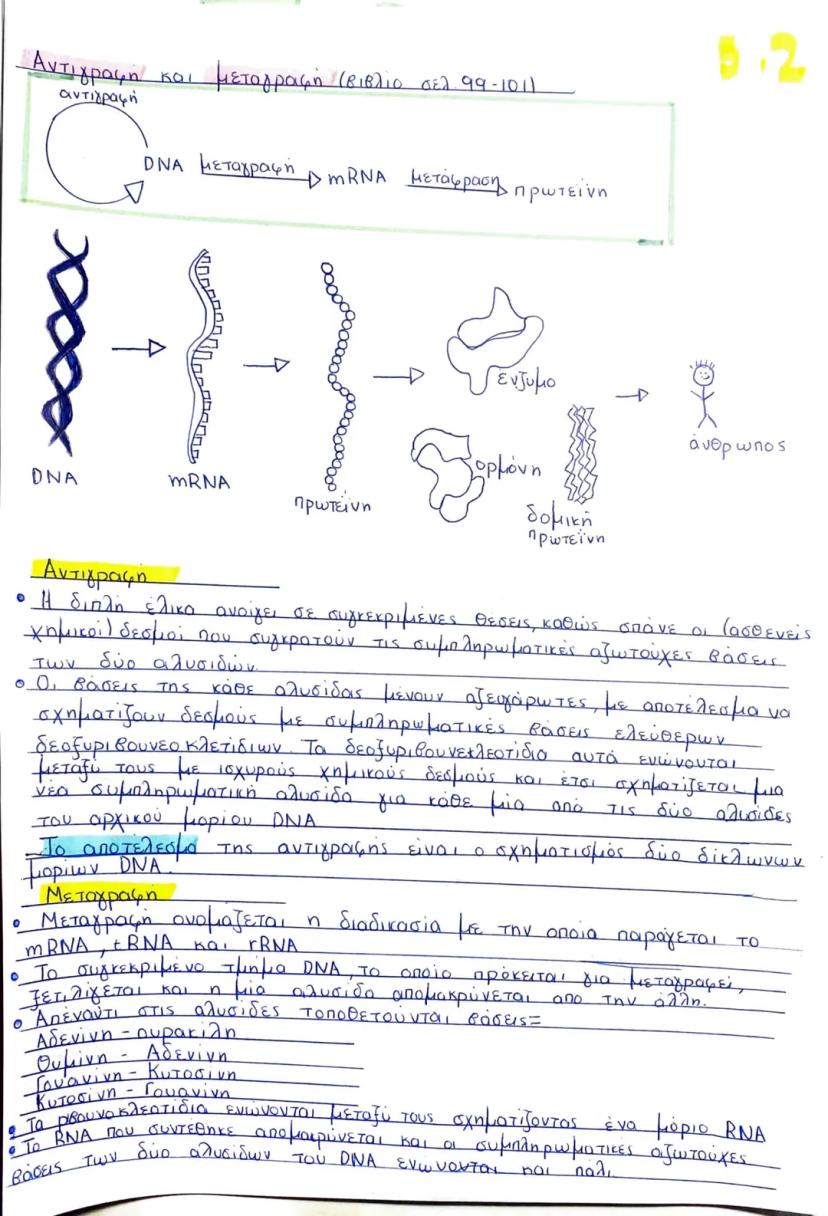 5.2
Αντιγραφή και μεταγραφή (βιβλίο σελ. 99-101)
αντιγραφή
DNA μεταγραφή mRNA μετάφραση πρωτεΐνη
ένζυμο
άνθρωπος
ορμόνη
DNA
mRNA
πρωτεΐνη
δομική
πρωτεΐνη
Αντιγραφή
• Η διπλή έλικα ανοίγει σε συγκεκριμένες θέσεις, καθώς σπάνε οι (ασθενείς
χημικοί) δεσμοί που συγκρατούν τις συμπληρωματικές αζωτούχες βάσεις
των δύο αλυσίδων.
• Οι βάσεις της κάθε αλυσίδας μένουν αζευγάρωτες, με αποτέλεσμα να
σχηματίζουν δεσμούς με συμπληρωματικές βάσεις ελεύθερων
δεοξυριβουνεοκλετίδιων. Τα δεοξυριβουνεκλεοτίδια αυτά ενώνονται
μεταξύ τους με ισχυρούς χημικούς δεσμούς και έτσι σχηματίζεται μια
νέα συμπληρωματική αλυσίδα για κάθε μία από τις δύο αλυσίδες
του αρχικού μορίου DNA
Το αποτέλεσμα της αντιγραφής είναι ο σχηματισμός δύο δίκλωνων
μορίων DNA.
Μεταγραφή
• Μεταγραφή ονομάζεται η διαδικασία με την οποία παράγεται το
mRNA, tRNA και rRNA
• Το συγκεκριμένο τμήμα DNA, το οποίο πρόκειται για μεταγραφεί,
ξετιλίγεται και η μία αλυσίδα απομακρύνεται από την άλλη.
• Απέναντι στις αλυσίδες τοποθετούνται βάσεις=
Αδενίνη - ουρακίλη
Θυμίνη - Αδενίνη
Γουανίνη - Κυτοσίνη
Κυτοσίνη - Γουανίνη
• Τα ριβουνοκλεοτίδια ενώνονται μεταξύ τους σχηματίζοντας ένα μόριο RNA
• Το RNA που συντέθηκε απομακρύνεται και οι συμπληρωματικές αζωτούχες
βάσεις των δύο αλυσίδων του DNA ενώνονται και πάλι.